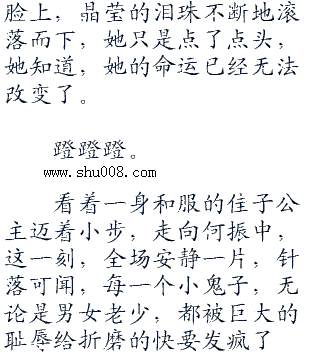 脸上，晶莹的泪珠不断地滚
落而下，她只是点了点头，
她知道，她的命运已经无法
改变了。
蹬蹬蹬。
www.shu008.com
看着一身和服的佳子公
主迈着小步，走向何振中，
这一刻，全场安静一片，针
落可闻，每一个小鬼子，无
论是男女老少，都被巨大的
耻辱给折磨的快要发疯了